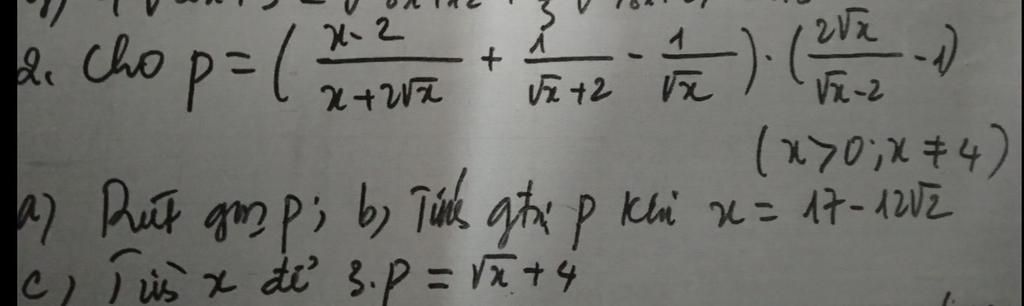 2. Cho p = ( (x-2)/(x+2√x) + 1/(√x+2) - 1/√x ) . ( 2√x/(√x-2) - 1)
(x>0; x ≠ 4)
a) Rút gọn p; b) Tính gtrị p khi x = 17-12√2
c) Tìm x để 3.p = √x + 4